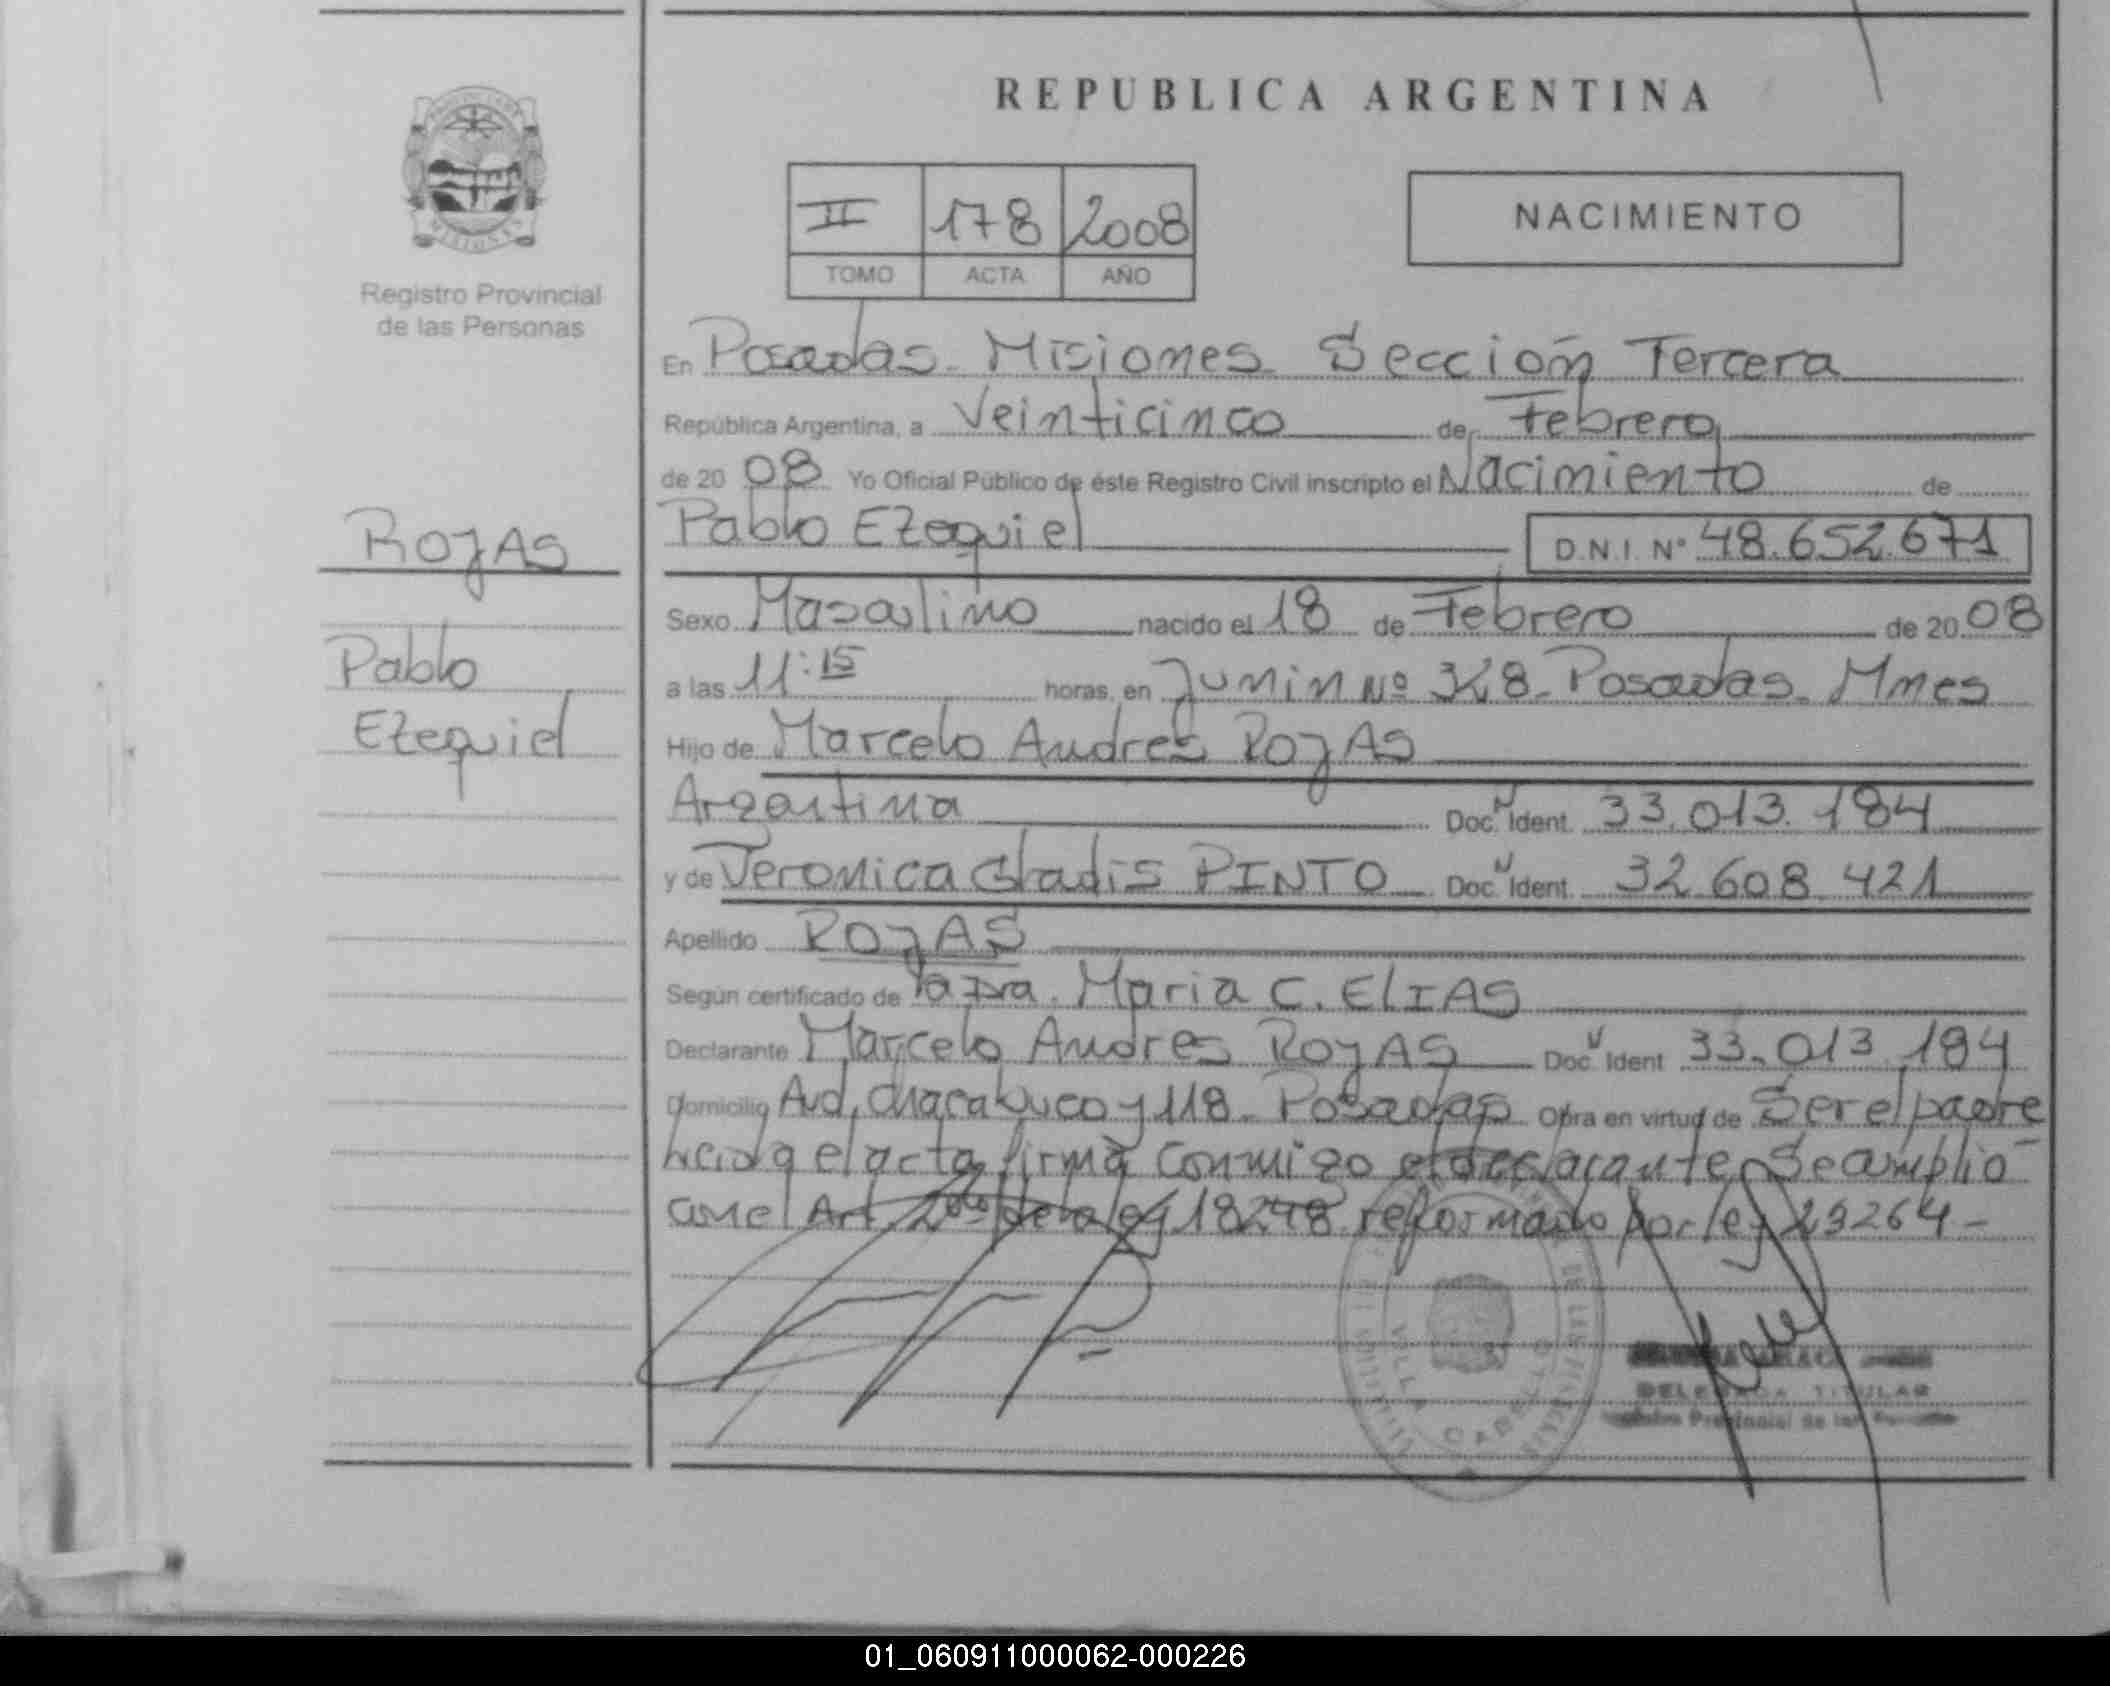 REPUBLICA ARGENTINA
II 178 2008
TOMO ACTA AÑO
NACIMIENTO
PROVINCIA DE
MISIONES
Registro Provincial
de las Personas
ROJAS
Pablo
Ezequiel
En Posadas - Misiones Sección Tercera
República Argentina, a Veinticinco de Febrero
de 20 08 Yo Oficial Público de éste Registro Civil inscripto el Nacimiento de
Pablo Ezequiel D.N.I. Nº 48.652.671
Sexo Masculino nacido el 18 de Febrero de 20 08
a las 11:15 horas, en Junin Nº Posadas - Mnes
Hijo de Marcelo Andres ROJAS
Argentina Doc. N Ident. 33.013.184
y de Veronica Gladis PINTO Doc. N Ident. 32.608.421
Apellido ROJAS
Según certificado de la Dra. Maria C. ELIAS
Declarante Marcelo Andres ROJAS Doc. N Ident 33.013.184
Domicilio Avd. Chacabuco y 118 - Posadas Obra en virtud de Ser el padre
leida el acta firma conmigo el declarante, Se amplio
con el Art. 2do de la ley 18248 reformado por ley 23264 -
VILLA CABELLO
DELEGADA TITULAR
Provincial de las
01_060911000062-000226